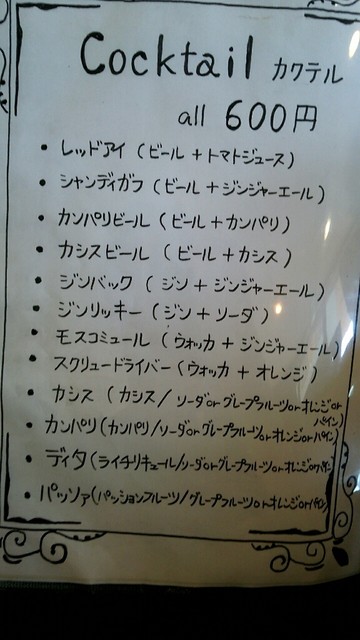 Cocktail カクテル
all 600円
• レッドアイ (ビール + トマトジュース)
• シャンディガフ (ビール + ジンジャーエール)
• カンパリビール (ビール + カンパリ)
• カシスビール (ビール + カシス)
• ジンバック (ジン + ジンジャーエール)
• ジンリッキー (ジン + ソーダ)
• モスコミュール (ウォッカ + ジンジャーエール)
• スクリュードライバー (ウォッカ + オレンジ)
• カシス (カシス/ソーダorグレープフルーツorオレンジorパイン)
• カンパリ(カンパリ/ソーダorグレープフルーツorオレンジorパイン)
• ディタ(ライチリキュール/ソーダorグレープフルーツorオレンジorパイン)
• パッソァ(パッションフルーツ/グレープフルーツorオレンジorパイン)